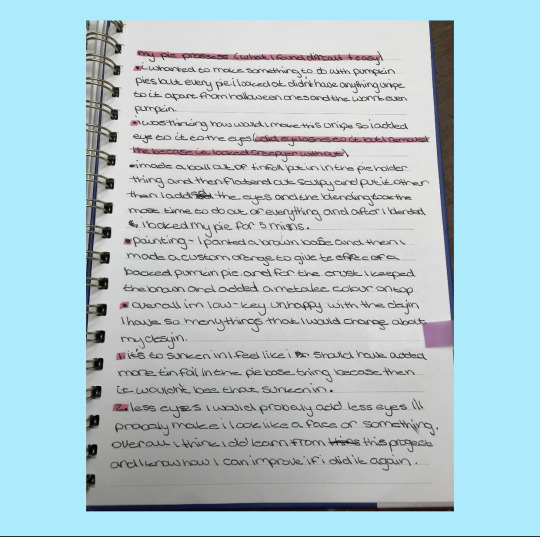 my pie process (what I found difficult & easy)
• i wanted to make something to do with pumpkin
pies but every pie i looked at didn't have anything uniqe
to it apart from halloween ones and the won't even
pumpkin.
• i was thinking how would I make this uniqe so i added
eye to it to the eyes (i did eyelashes to it but i removed
the becase it looked creepyer without)
• i made a ball out of tinfoil put in in the pie holder
thing and then flatend out sculpy and put it other
then I add the eyes and the blending took the
most time to do out of everything and after I blended
I baked my pie for 5 mins.
• painting - I panted a brown base and then i
made a custom orange to give te effece of a
backed pumkin pie and for the crust I keeped
the brown and added a metalic colour on top
• overall im low-key unhappy with the desjin
I have so meny things that I would change about
my desjin.
1. it's to sunken in I feel like i should have added
more tin foil in the pie base thing becase then
it wouldn't bee that sunken in.
2. less eyes I would probaly add less eyes I'll
probaly make i look like a face or something.
overall I think I did learn from this progect
and I know how I can improve if i did it again.